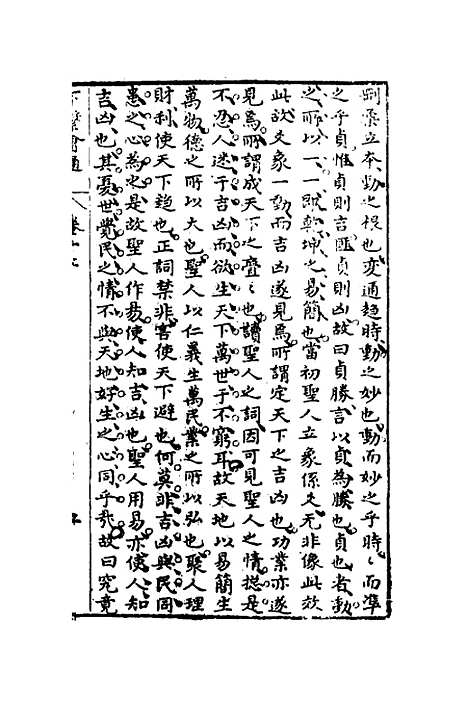 剛柔立本動之根也変通趋時動之妙也動而妙之乎時〻而準
之乎貞惟貞則吉匪貞則凶故曰貞勝言以貞為勝也貞也者動
之所以一〻即乾坤之易簡也當初聖人立象係爻无非像此效
此故爻象一動而吉凶遂見焉所謂定天下之吉凶也功業亦遂
見焉所謂成天下之亹〻也讀聖人之詞因可見聖人之情揔是
不忍人迷于吉凶而欲生天下萬世于不窮耳故天地以易簡生
萬物德之所以大也聖人以仁義生萬民業之所以弘也聚人理
財利使天下趋也正詞禁非害使天下避也何莫非吉凶與民同
患之心為之是故聖人作易使人知吉凶也聖人用易亦使人知
吉凶也其憂世覺民之情不與天地好生之心同乎哉故曰究竟